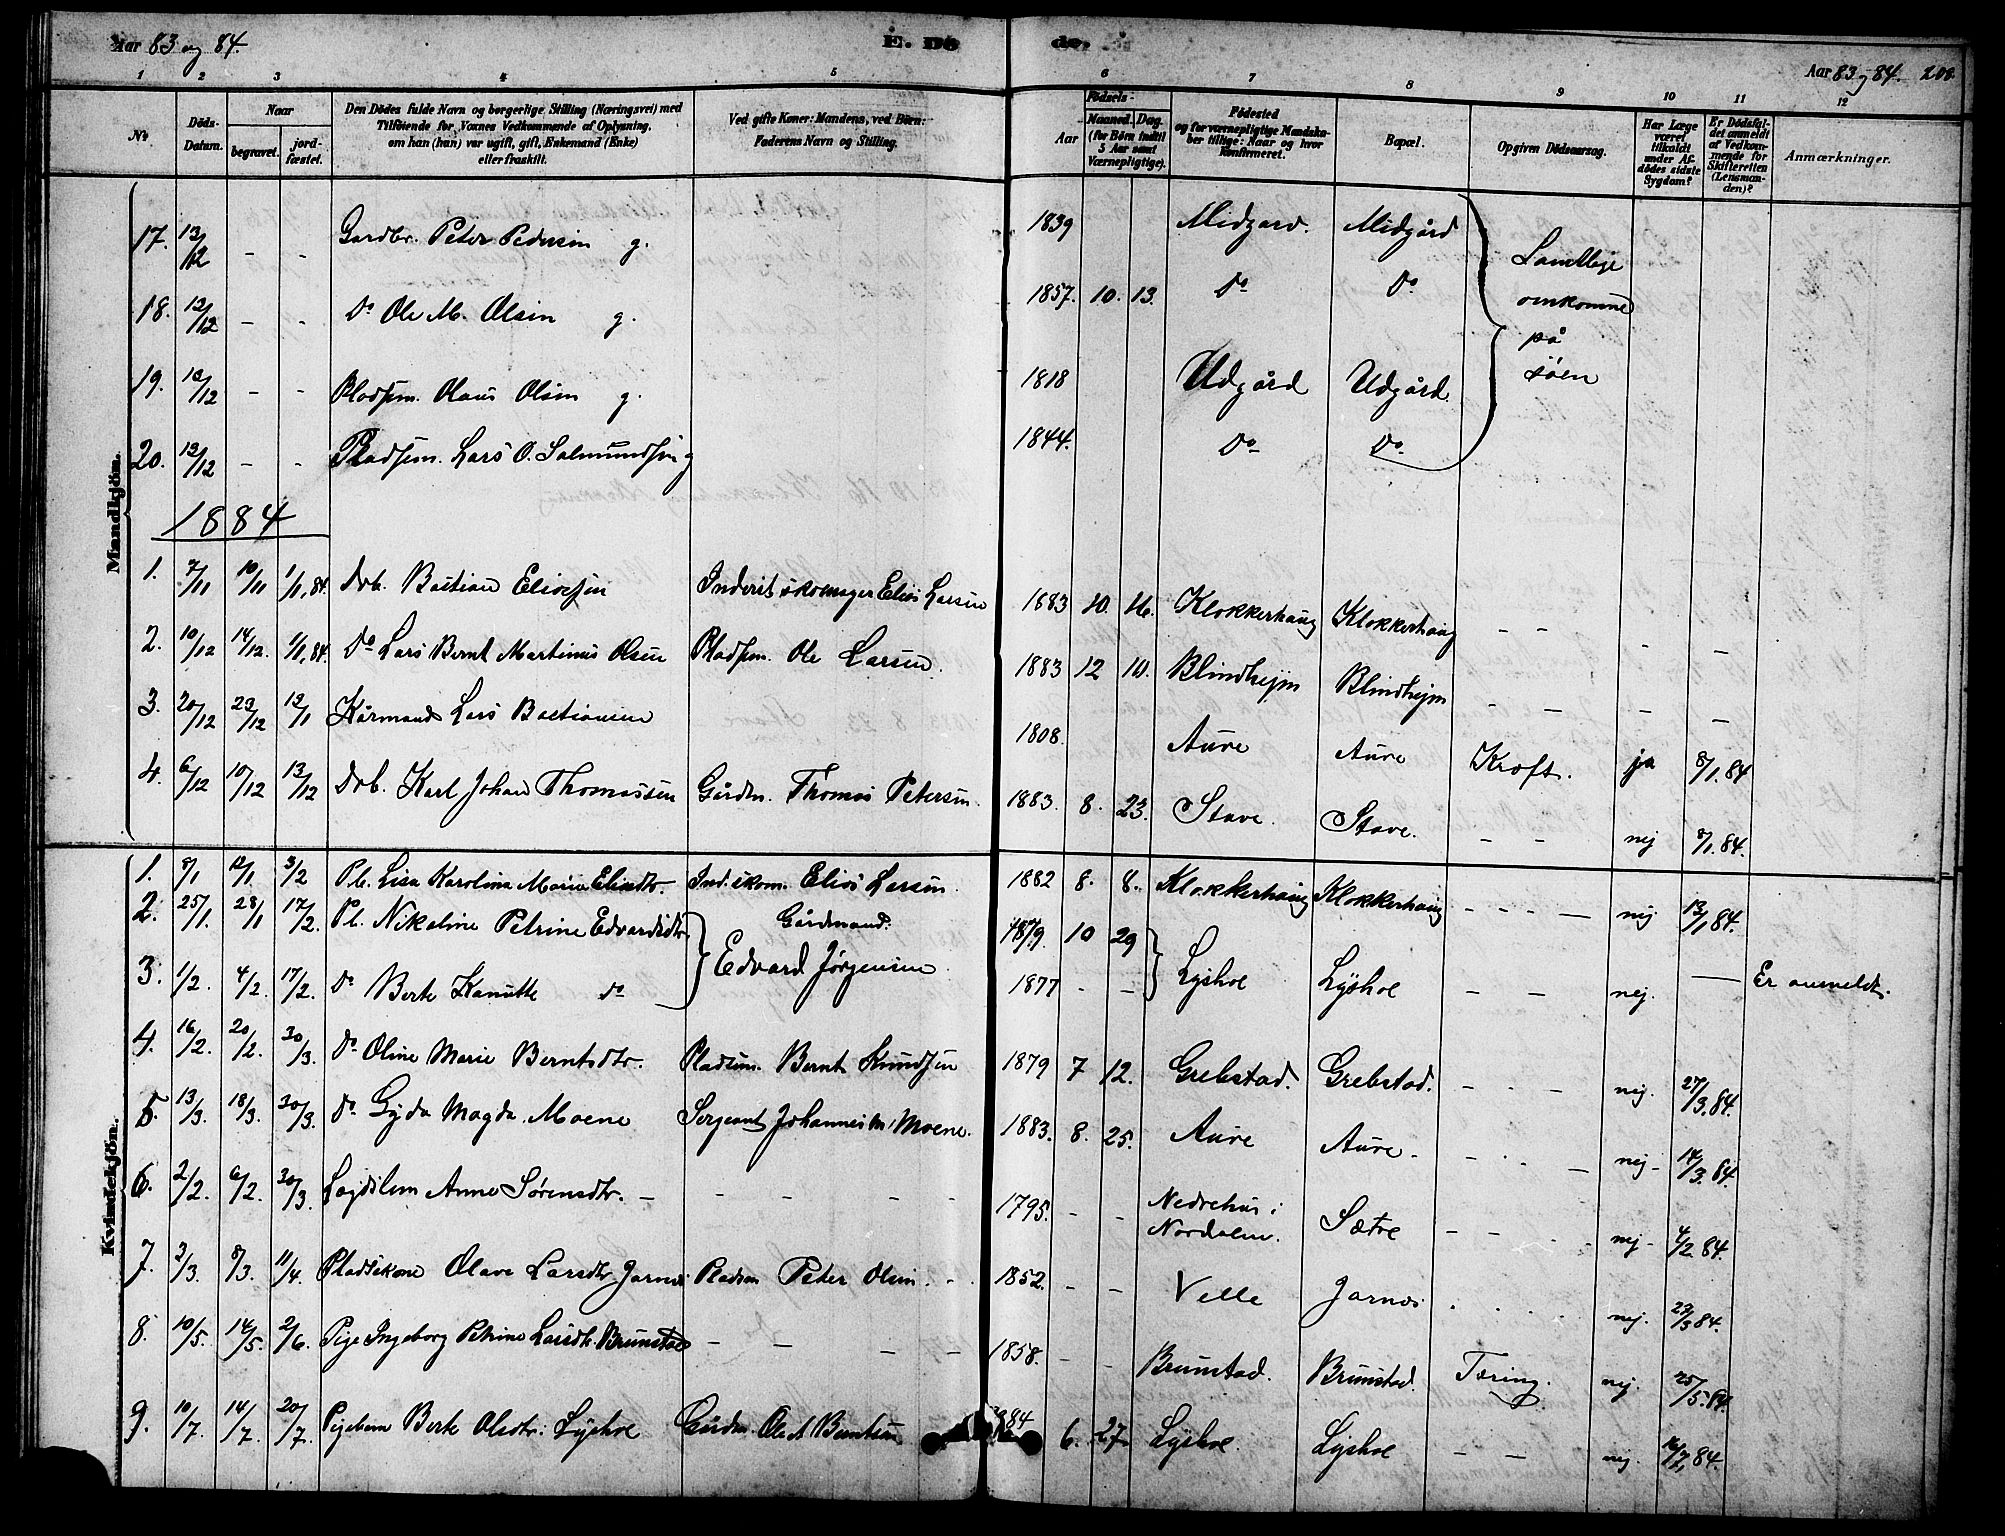 Aar 83 og 84.
E. Dö
de.
Aar 83 og 84. 200.
1 2 3 4 5 6 7 8 9 10 11 12
No
Döds-Datum.
Naar
begravet.
jord-fæstet.
Den Dödes fulde Navn og borgerlige Stilling (Næringsvei) med
Tilföiende for Voxnes Vedkommende af Oplysning,
om han (hun) var ugift, gift, Enkemand (Enke)
eller fraskilt.
Ved gifte Koner: Mandens, ved Börn:
Faderens Navn og Stilling.
Födsels-
Aar
Maaned.
Dag
(for Börn indtil
5 Aar samt
Værnepligtige).
Födested
og for værnepligtige Mandska-
ber tillige: Naar og hvor
Konfirmeret.
Bopæl.
Opgiven Dödsaarsag.
Har Læge
været
tilkaldt
under Af-
dödes sidste
Sygdom?
Er Dödsfal-
det anmeldt
af Vedkom-
mende for
Skifteretten
(Lensman-
den)?
Anmærkninger.
Mandkjön.
17. 13/12 - - Gardbr. Peter Pedersen g. 1839 Midgard. Midgård
Samtlige
omkomne
på
søen
18. 13/12 - - Do Ole M. Olsen g. 1857. 10. 13. Do Do
19. 13/12 - - Pladsm. Olaus Olsen g. 1818 Udgård Udgård
20. 13/12 - - Pladsm. Lars O. Salmundsen g 1844. Do Do
1884
1. 7/11 10/11 1/1, 84. Drb. Bastian Eliassen Inderst skomager Elias Larsen 1883 10. 16. Klokkerhaug Klokkerhaug - - - -
2. 10/12 14/12. 1/1, 84. Do Lars Bernt Martinus Olsen Pladsm. Ole Larsen. 1883 12 10. Blindhejm Blindhejm - - - -
3. 20/12 23/12 12/1 Kårmand Lars Bastiansen 1808. Aure Aure Kræft. ja 8/1.84
4. 6/12 10/12 13/12 Drb. Karl Johan Thomassen Gårdm. Thomas Petersen. 1883. 8. 23. Stave. Stave. - - nej 8/1.84.
Kvindekjön.
1. 8/1 12/1 3/2 Pb. Lisa Karolina Marie Eliasdtr. Ind. skom. Elias Larsen. 1882 8. 8. Klokkerhaug Klokkerhaug - - - - nej 13/1 84.
2. 25/1. 28/1 17/2. Pb. Nikoline Petrine Edvardsdtr. Gårdmand. 1879. 10 29
Edvard Jørgensen Lyshoe
3. 1/2. 4/2. 17/2. Do Berte Kanutte do 1877 - - Lyshoe - - nej. — Er anmeldt.
4. 16/2. 20/2. 30/3. Do Oline Marie Berntsdtr. Pladsm. Bernt Knudsen 1879 7 12. Grebstad. Grebstad. - - - nej. 27/3.84.
5. 13/3. 18/3. 30/3. Do Gyda Magda Moene Sergeant Johannes M. Moene. 1883. 8. 25. Aure Aure - - - - nej - 14/3.84.
6. 2/2. 6/2. 30/3. Lægdslem Anne Sørensdtr. - - - - - 1795. - - Nedrehus i
Nordalen. Sætre - - - nej - 4/2 84.
7. 3/3. 8/3. 11/4. Pladskone Olave Larsdtr. Jarnæs Pladsm Peter Olsen. - - 1852. - - Velle Jarnæs . . . . nej. 23/3 84.
8. 10/5. 14/5. 2/6. Pige Ingeborg Petrine Larsdtr. Brunstad - - - - 1858. - - Brunstad. Brunstad. Tæring. nej. 25/5.84.
9. 10/7. 14/7. 20/7. Pigebarn Berte Olsdtr. Lyshoe Gårdm. Ole A Berntsen 1884 6. 27. Lyshoe. Lyshoe - - nej. 16/7.84.